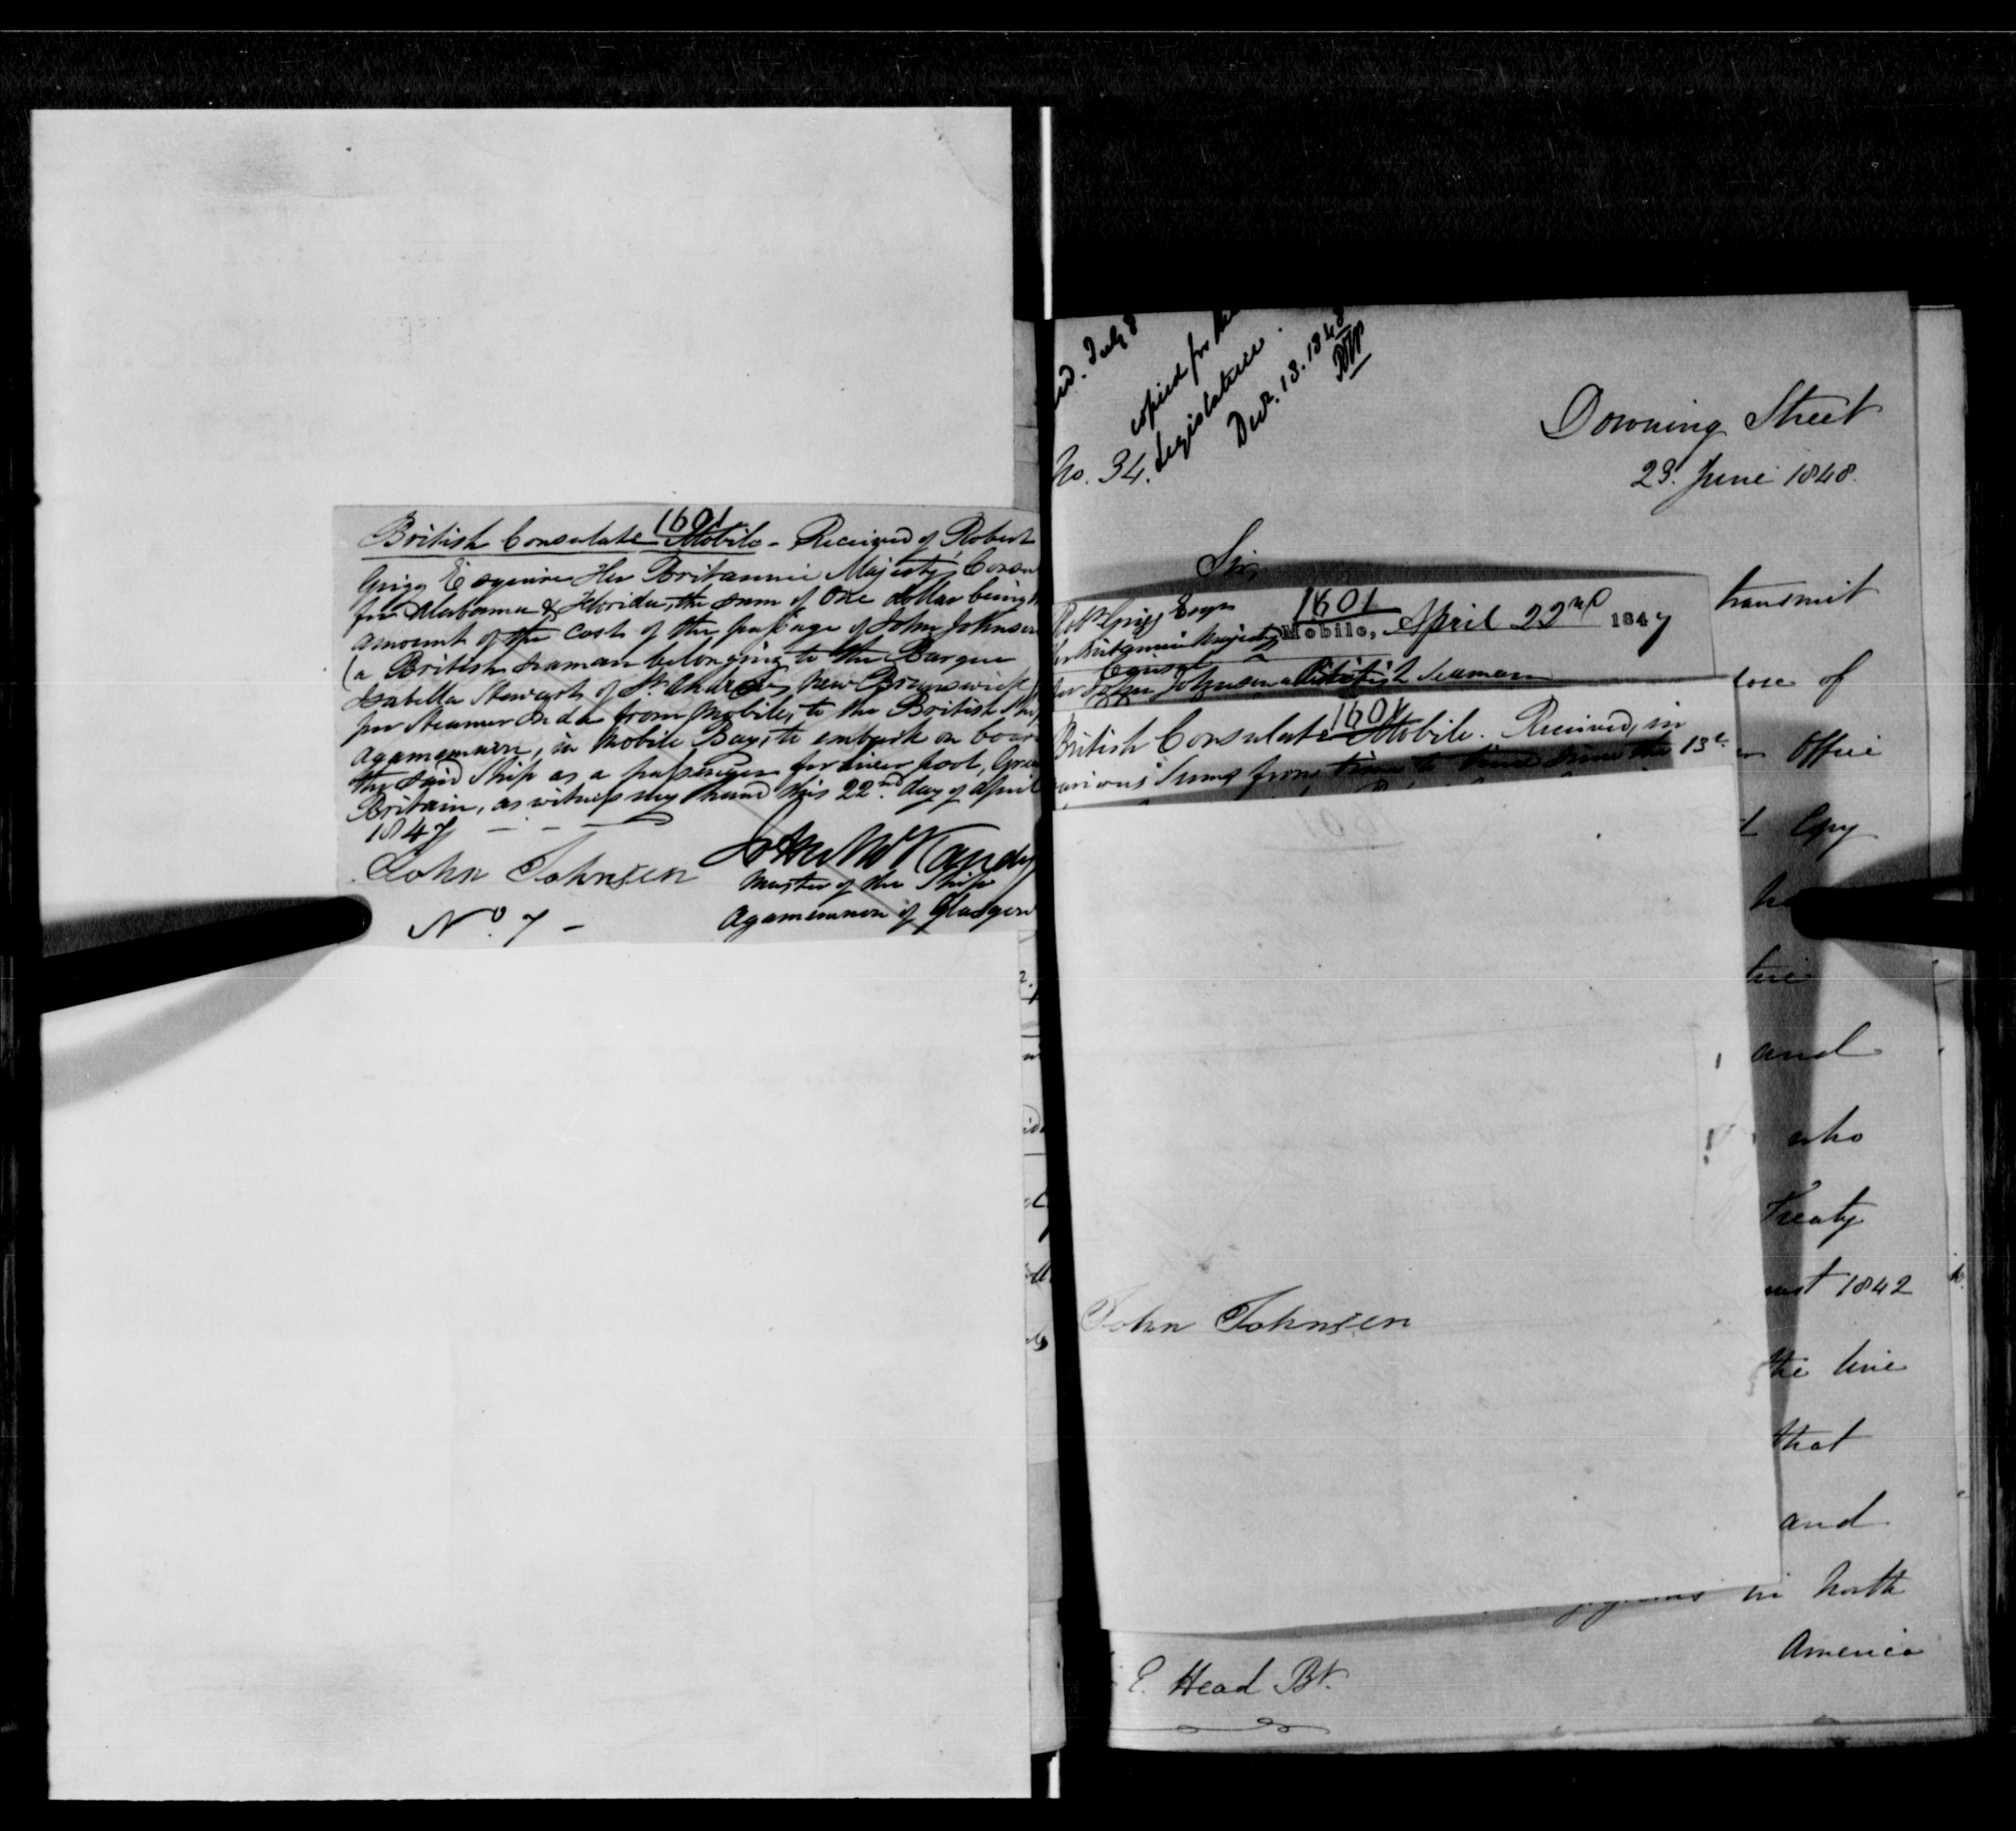 1601
British Consulate Mobile - Received of Robert
Grigg Esquire Her Britannic Majesty's Consu
for Alabama & Florida, the sum of One dollar being
amount of the cost of the passage of John Johnsen
(a British Seaman belonging to the Barque
Isabella Stewart of St. Andrews New Brunswick
per Steamer from Mobile, to the British Ship
Agamemnon, in Mobile Bay, to embark on board
the said Ship as a passenger for Liverpool, Great
Britain, as witness my hand this 22nd day of April
1847
John Johnsen
Master of the Ship
No. 7 -
Agamemnon of Glasgow
July 8
copied for the
Legislature.
Decr. 13. 1848
No. 34.
Downing Street
23. June 1848.
Sir,
transmit
Robt Grigg Esqr
1601
Her Britannic Majesty's
Mobile, April 22nd 1847
Consul
for John Johnsen a British Seaman
of
1601
British Consulate Mobile. Received, in
various sums from time to time since the 13th
Office
Copy
and
who
Treaty
1842
John Johnsen
the line
that
and
in North
America
E. Head Bt.